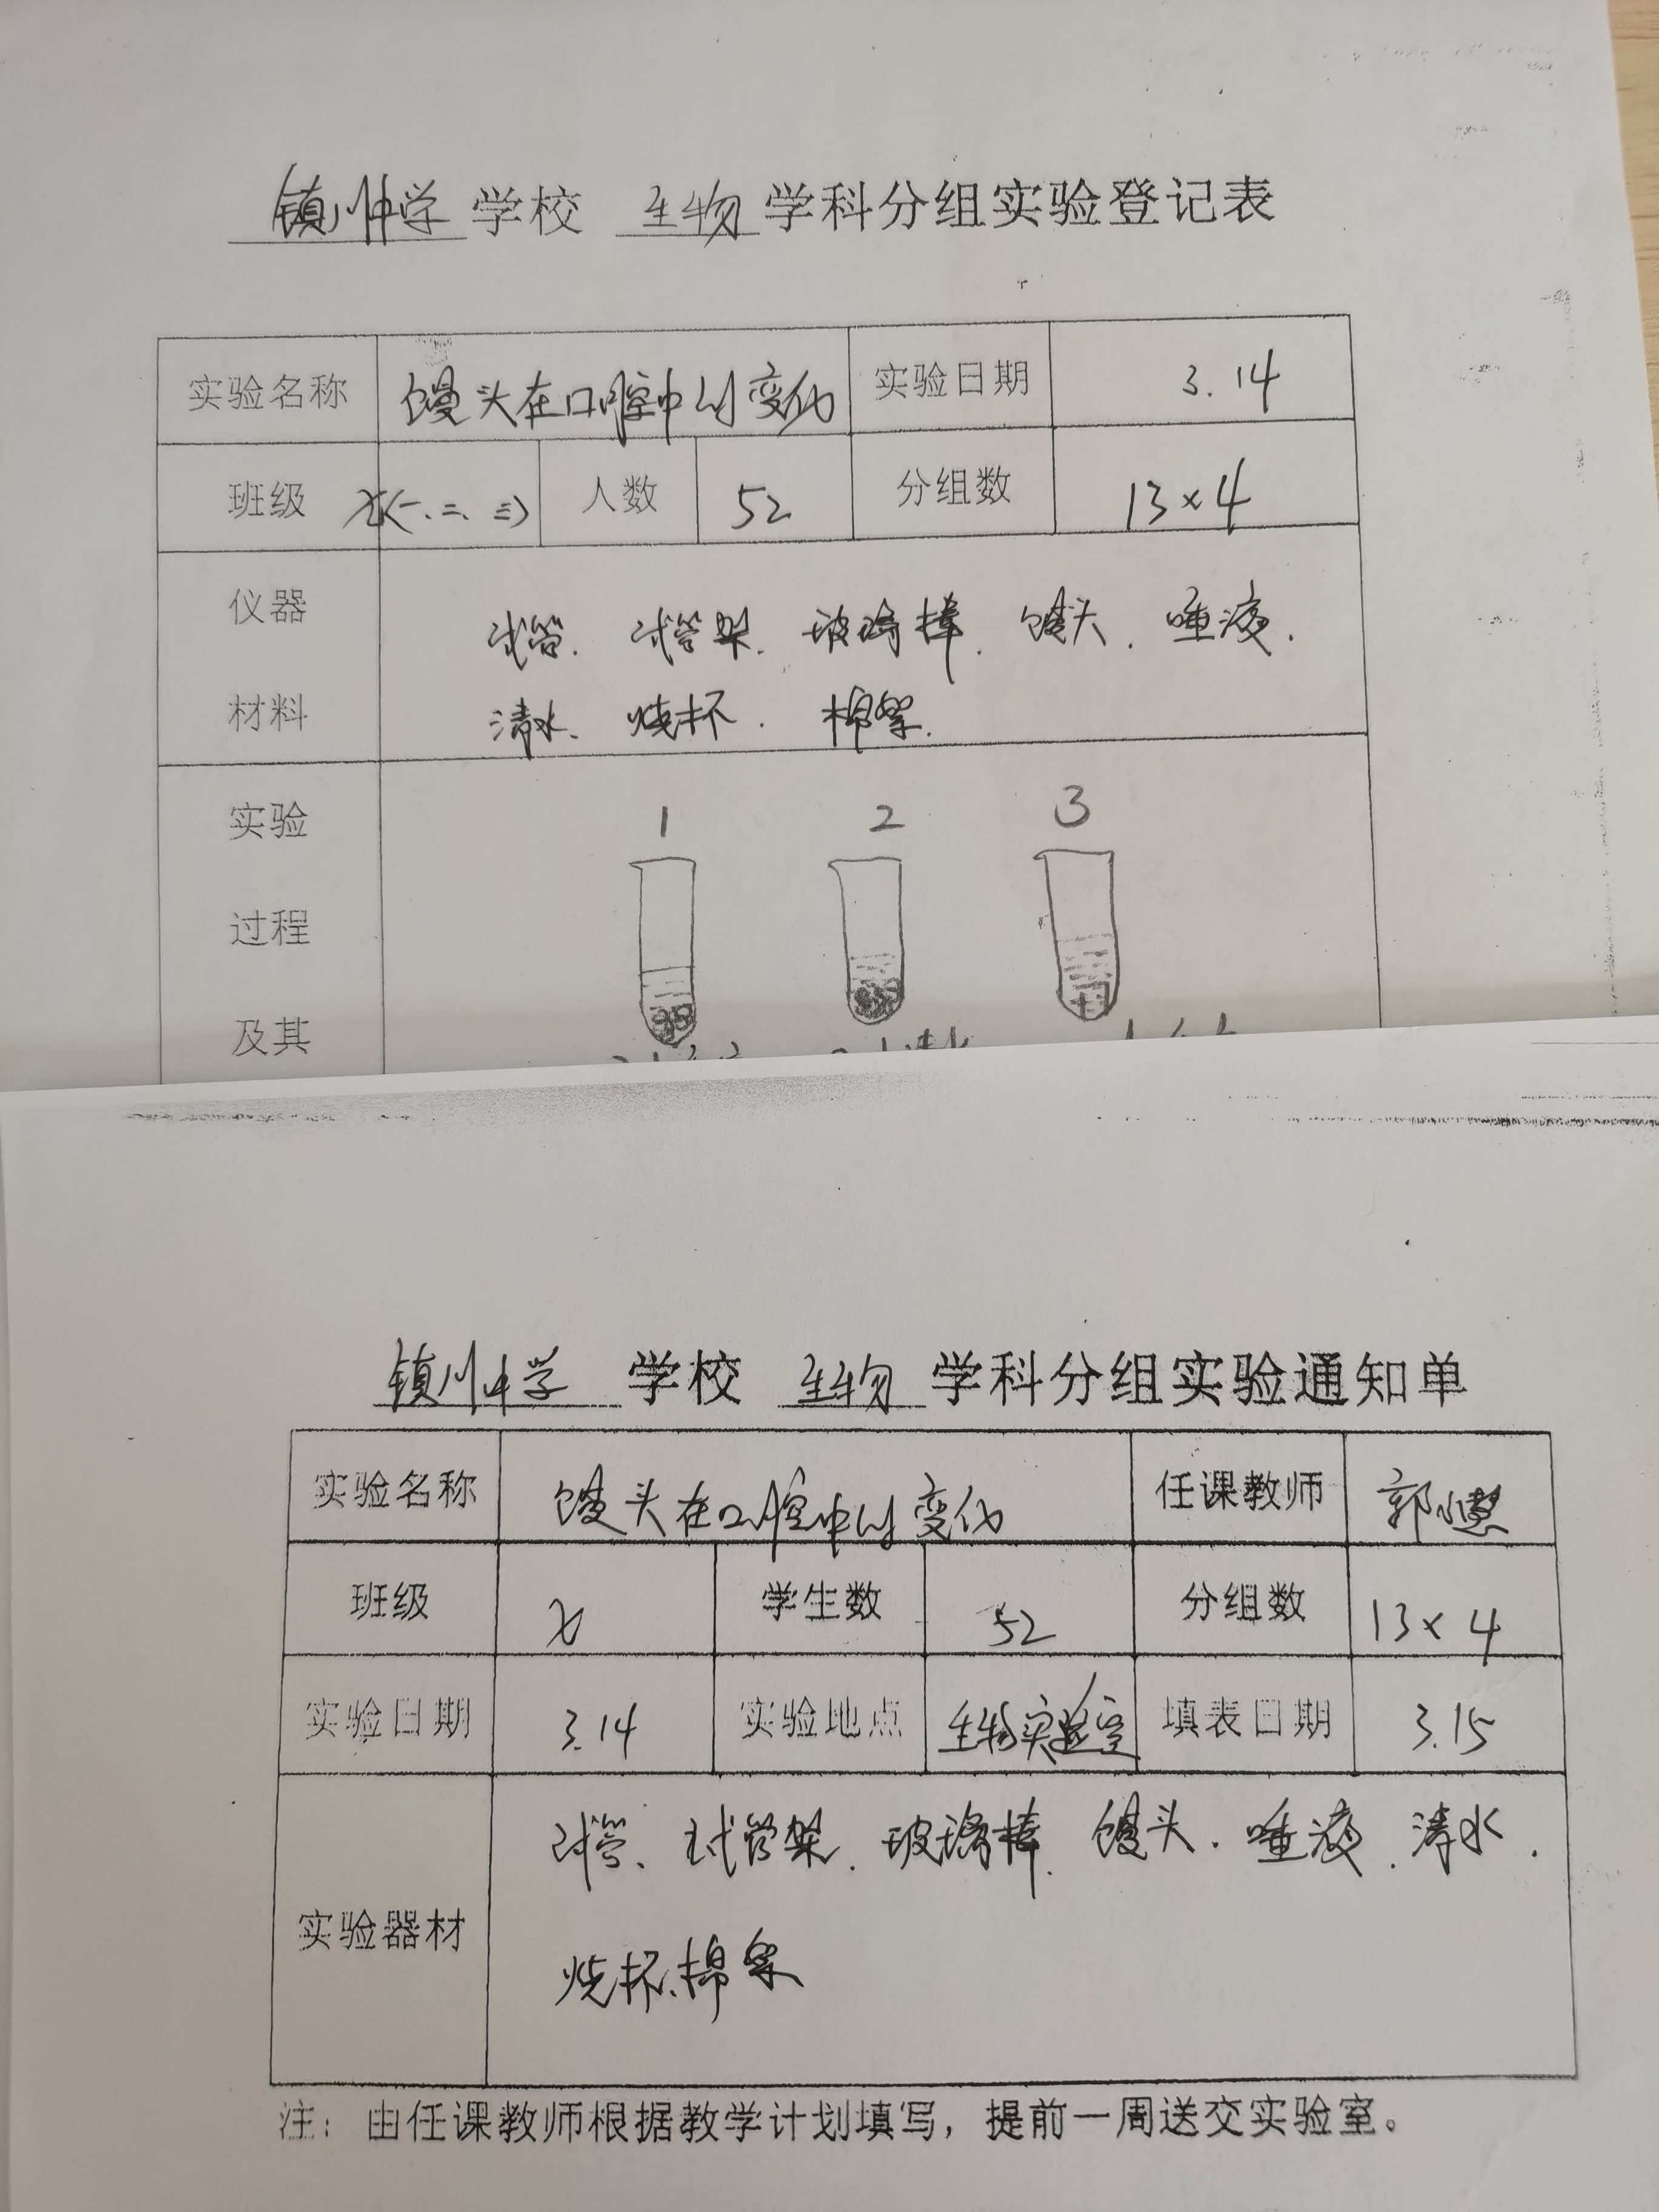 镇川中学 学校 生物 学科分组实验登记表
实验名称 馒头在口腔中的变化 实验日期 3.14
班级 七(一、二、三) 人数 52 分组数 13×4
仪器 材料 试管、试管架、玻璃棒、馒头、唾液、
清水、烧杯、棉絮.
实验 1 2 3
过程
及其
镇川中学 学校 生物 学科分组实验通知单
实验名称 馒头在口腔中的变化 任课教师 郭小慧
班级 七 学生数 52 分组数 13×4
实验日期 3.14 实验地点 生物实验室 填表日期 3.15
实验器材 试管、试管架、玻璃棒、馒头、唾液、清水、
烧杯、棉絮
注：由任课教师根据教学计划填写，提前一周送交实验室。